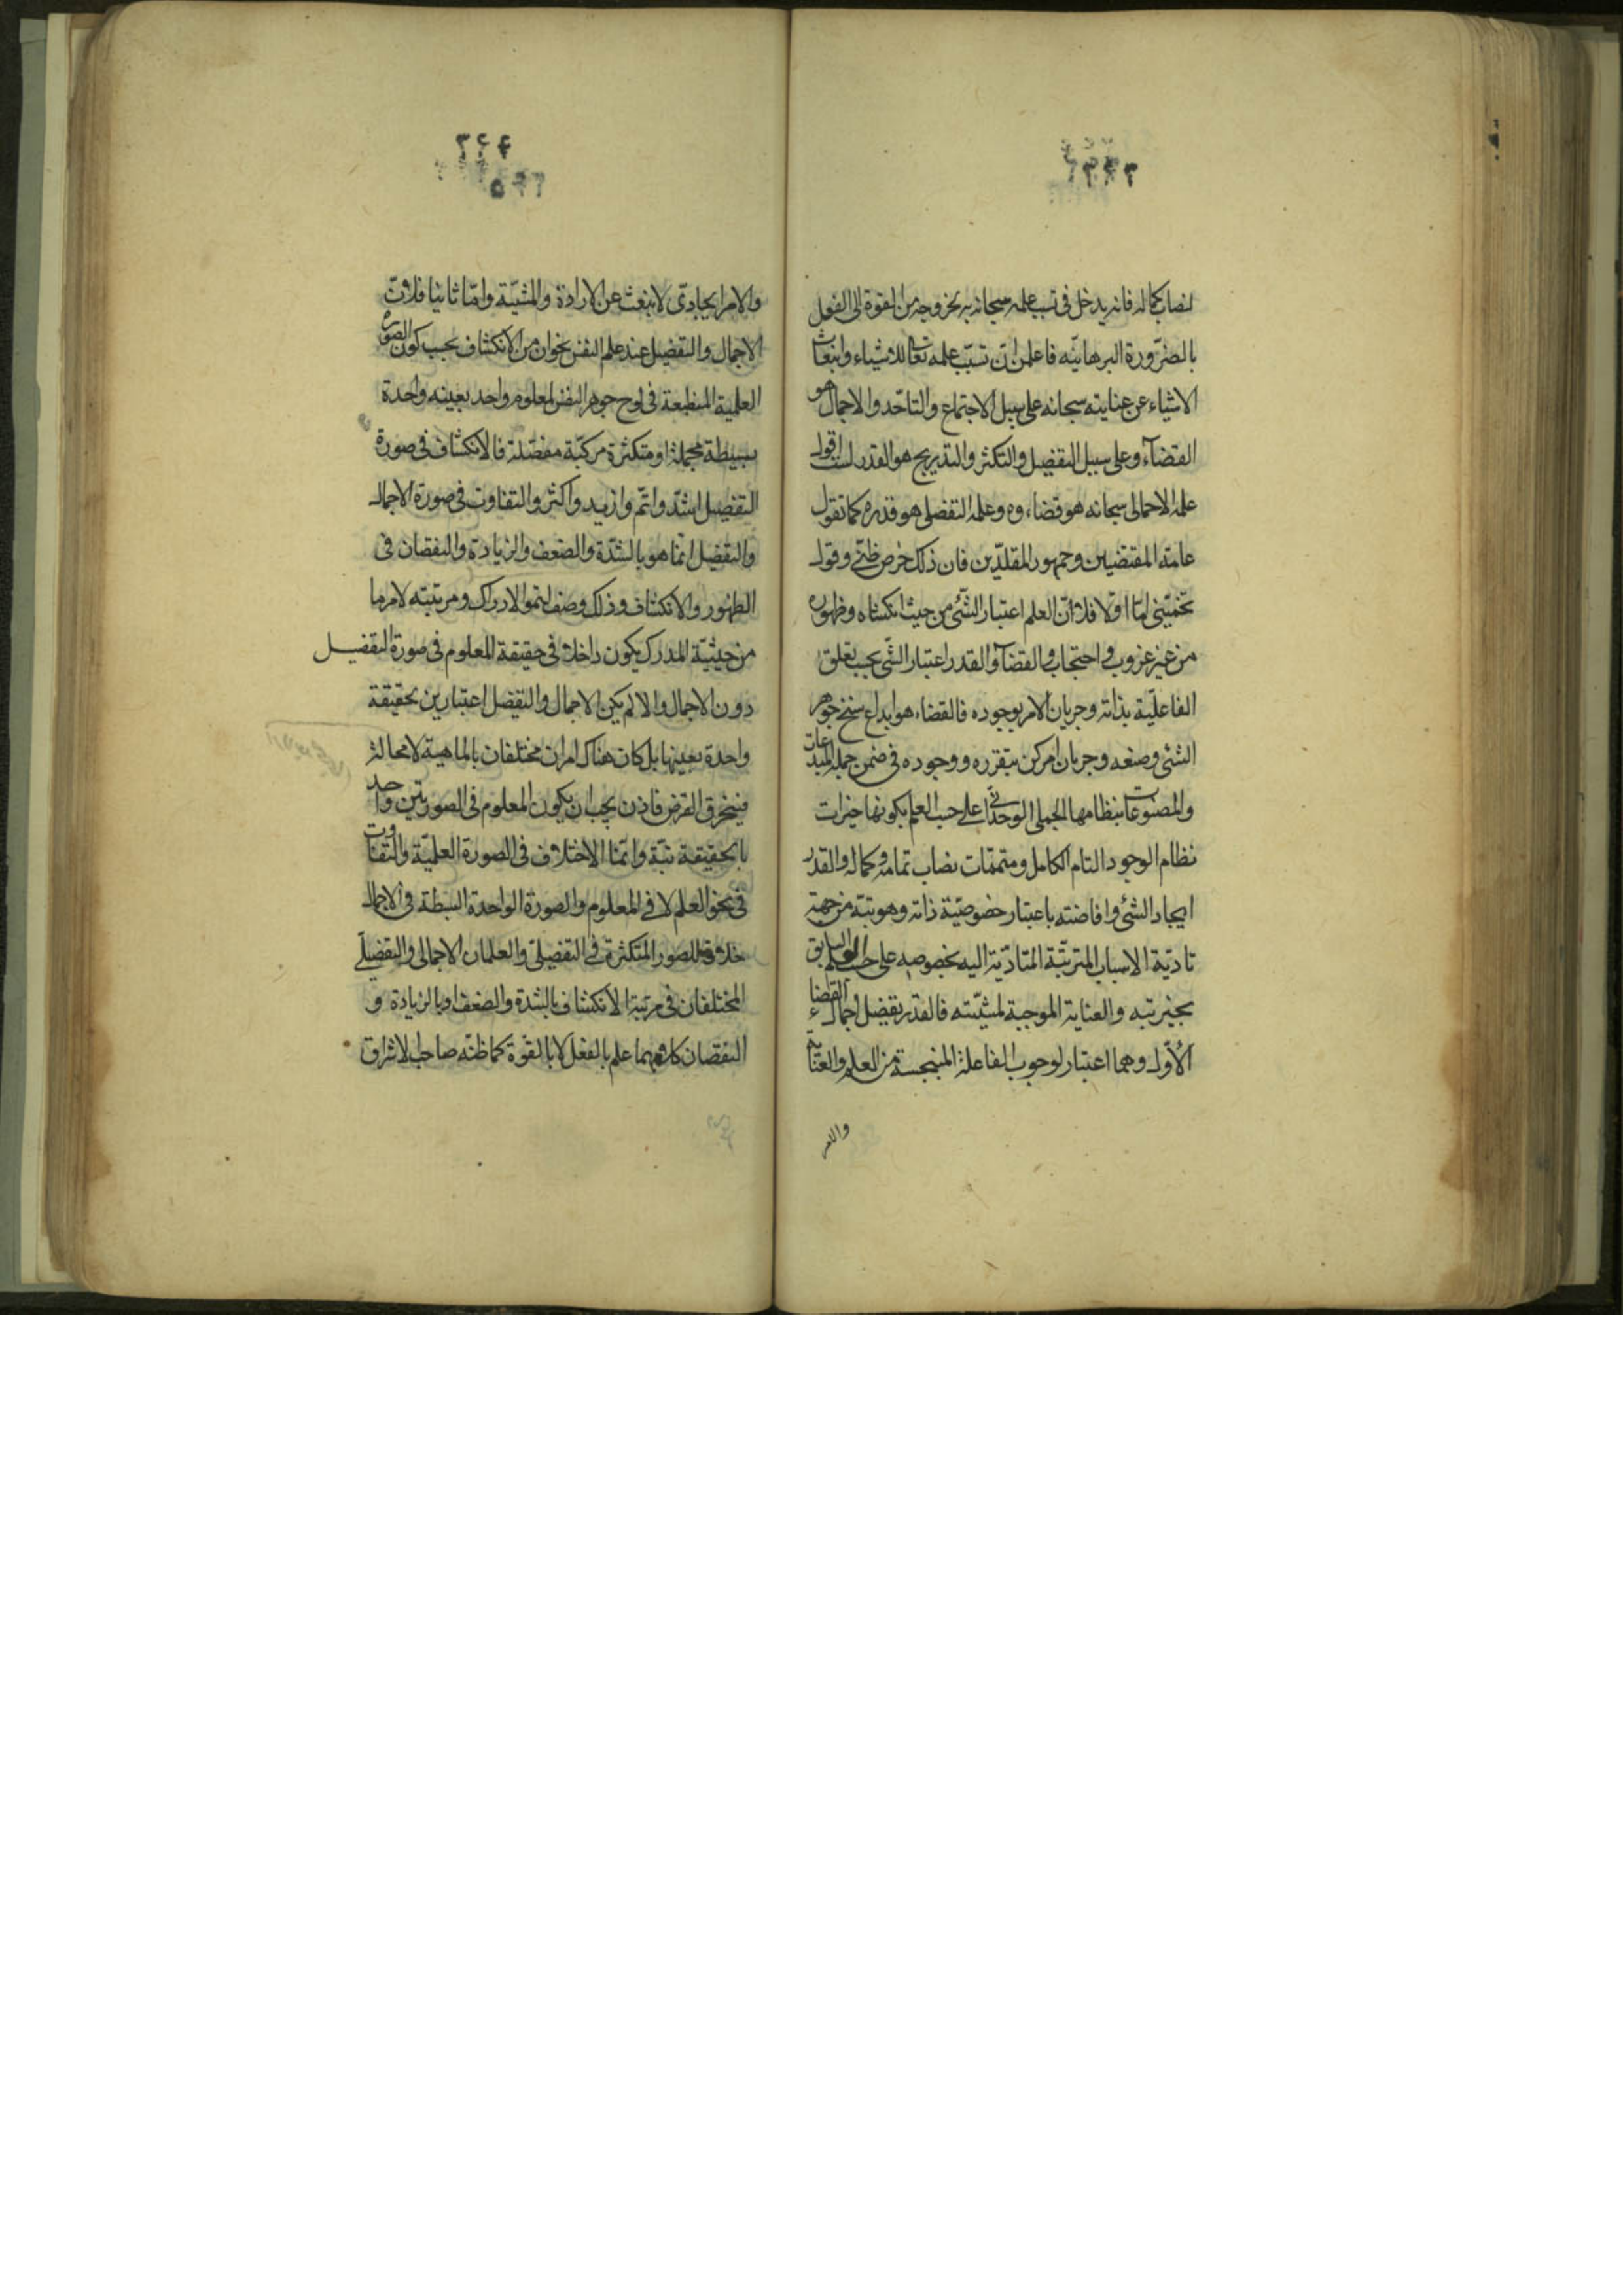 لنصاب كماله فانه يدخل فى تسبب علمه سبحانه به بخروجه من القوة الى الفعل
بالضرورة البرهانيه فاعلمن ان تسبب علمه تعالى للاشياء وانبعاث
الاشياء عن عنايته سبحانه على سبيل الاجتماع والتاحد والاجمال هو
القضآء وعلى سبيل التفصيل والتكثر والتدريج هو القدر لست اقول
علمه الاجمالى سبحانه هو قضاءوه وعلمه التفصيلى هو قدره كما تقول
عامة المقتضبين وجمهور المقلدين فان ذلك خرص ظنى وقول
تخمينى اما اولا فلان العلم اعتبار الشئ من حيث انكشافه وظهوره
من غير عزوب واحتجاب والقضآ والقدر اعتبار الشى بحسب تعلق
الفاعلية بذاته وجريان الامر بوجوده فالقضاء هو ابداع سنخ جوهر
الشئ وصنعه وجريان امر كن بتقرره ووجوده فى ضمن جملة المبدعات
والمصنوعات بنظامها الجملى الوحدانى على حسب العلم بكونها خيرات
نظام الوجود التام الكامل ومتممات نصاب تمامه وكماله والقدر
ايجاد الشئ وافاضته باعتبار خصوصية ذاته وهويته من جهة
تادية الاسباب المترتبة المتادية اليه بخصوصه على حسب العلم السابق
بخيريته والعناية الموجبة لمشيته فالقدر تفصيل اجمال القضاء
الأول وهما اعتبار لوجوب الفاعلة المنبجسة من العلم والعناية
والامر
والامر ايجادى لا ينبعث عن الارادة والمشية واما ثانيا فلان
الاجمال والتفصيل عند علم النفس نحوان من الانكشاف بحسب كون الصورة
العلمية المنطبعة فى لوح جوهر النفس لمعلوم واحد بعينه واحدة
بسيطة مجملة او متكثرة مركبة مفصلة فالانكشاف فى صورة
التفصيل اشد واتم وازيد واكثر والتفاوت فى صورة الاجمال
والتفصيل انما هو بالشدة والضعف والزيادة والنقصان فى
الظهور والانكشاف وذلك وصف لنحو الادراك ومرتبته لامر ما
من حيثية المدرك يكون داخلا فى حقيقة المعلوم فى صورة التفصيل
دون الاجمال والا لم يكن الاجمال والتفصيل اعتبارين بحقيقة
واحدة بعينها بل كان هناك امران مختلفان بالماهية لا محالة
فينخرق الفرض فاذن يجب ان يكون المعلوم فى الصورتين واحد
بالحقيقة بتة وانما الاختلاف فى الصورة العلمية والتفاوت
فى نحو العلم لا فى المعلوم والصورة الواحدة البسيطة فى الاجمال
خلاقة للصور المتكثرة فى التفصيلى والعلمان الاجمالى والتفصيلى
المختلفان فى مرتبة الانكشاف بالشدة والضعف او بالزيادة و
النقصان كلاهما علم بالفعل لا بالقوة كما ظنه صاحب الاشراق